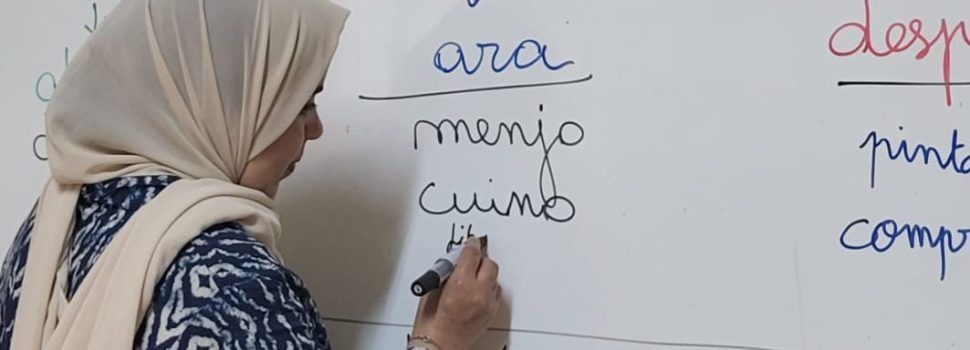 ara
menjo
cuino
desp
pinta
comp